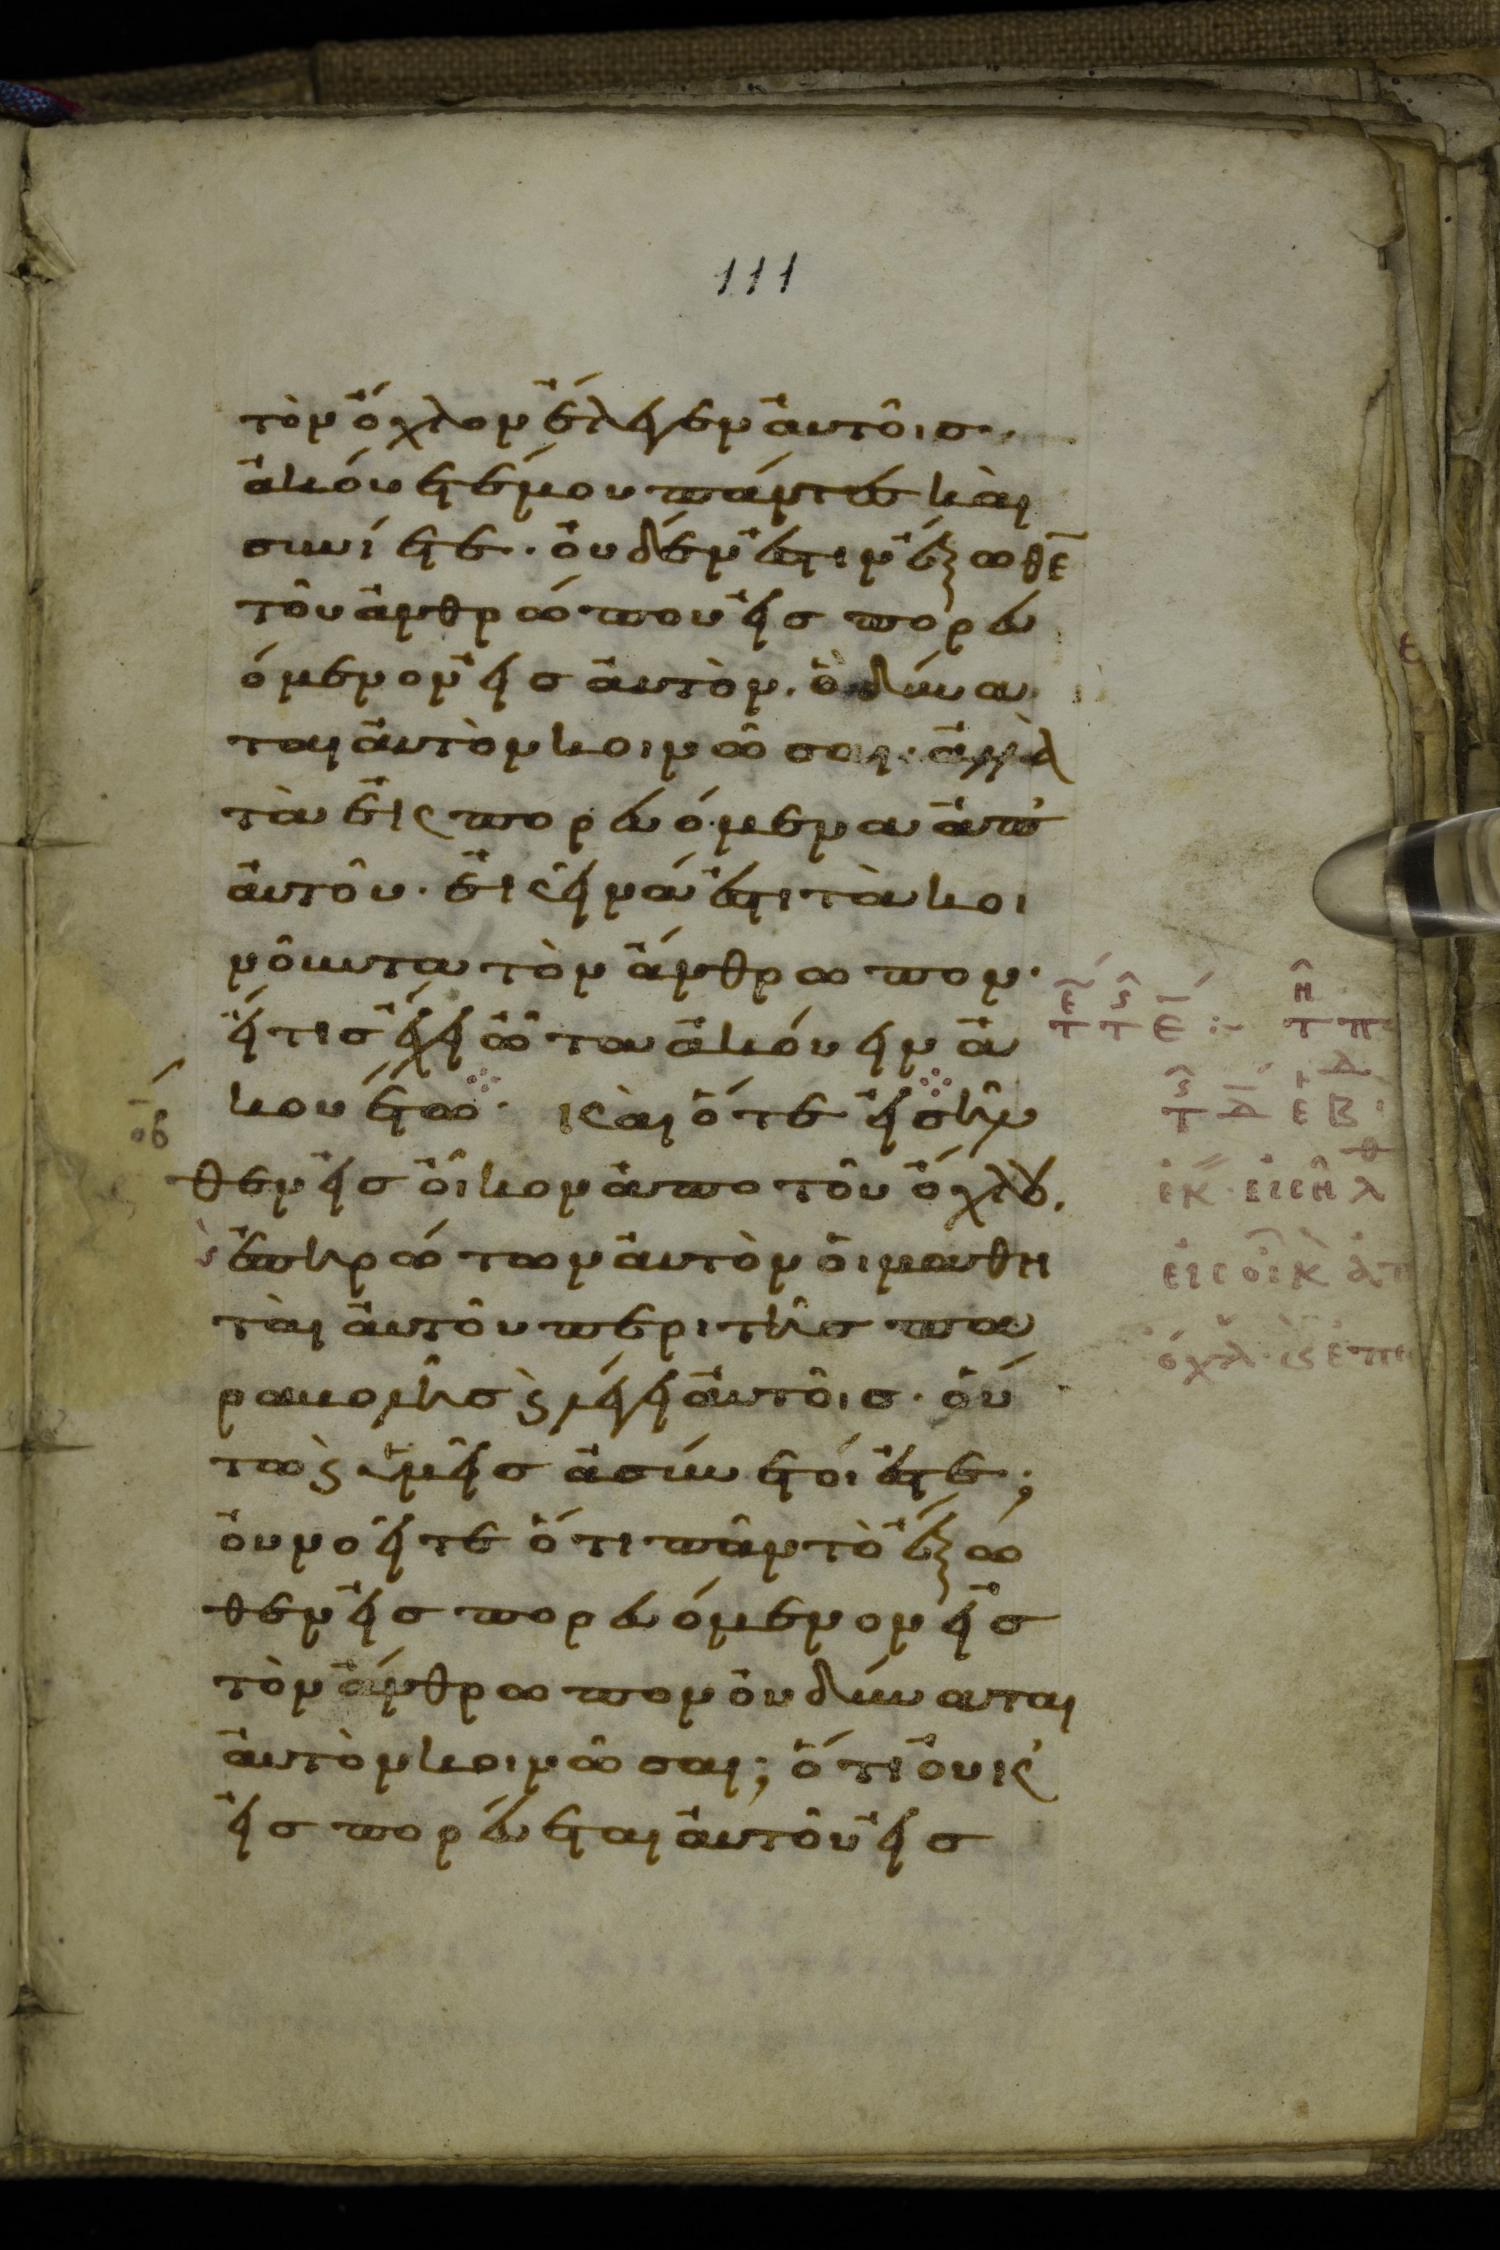 111
τὸν ὄχλον ἔλεγεν αὐτοῖσ·
ἀκούετέ μου πάντες καὶ
συνίετε· οὐδέν ἐστιν ἔξωθε̄
τοῦ ἀνθρώπου εἰσπορευ
όμενον εἰσ αὐτὸν· ὃ δύνα
ται αὐτὸν κοινῶσαι· ἀλλὰ
τὰ ἐκπορευόμενα ἀπ᾽
αὐτοῦ· ἐκεῖνά ἐστι τὰ κοι
νοῦντα τὸν ἄνθρωπον·
εἴ τισ ἔχει ὦτα ἀκούειν ἀ
κουέτω· καὶ ὅτε εἰσῆλ
οβ
θεν εἰσ οἶκον ἀπο τοῦ ὄχλου.
ἐπηρώτων αὐτὸν οἱ μαθη
ταὶ αὐτοῦ περι τῆσ πα
ραβολῆσ ϗ λέγει αὐτοῖσ· οὕ
τω ϗ ὑμεῖσ ἀσύνετοί ἐστε;
οὐ νοεῖτε ὅτι πᾶν τὸ ἔξω
θεν εἰσπορευόμενον εἰσ
τὸν ἄνθρωπον οὐ δύναται
αὐτὸν κοινῶσαι; ὅτι οὐκ
εἰσπορεύεται αὐτοῦ εἰσ